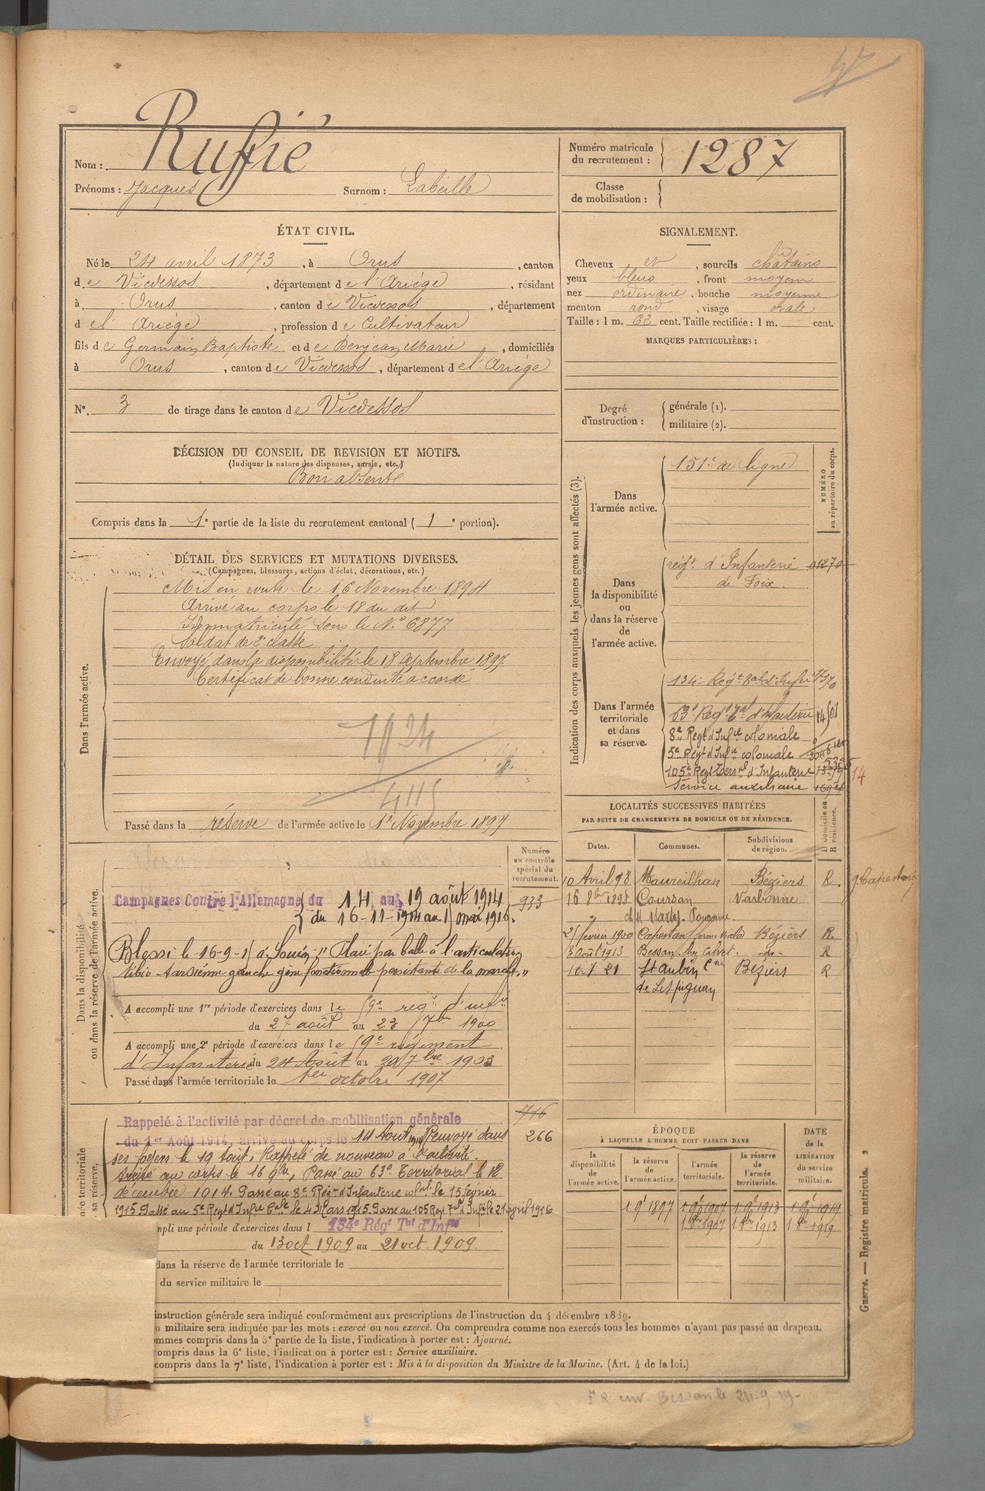 Nom : Ruffié
Prénoms : Jacques Surnom : Labeille
Numéro matricule du recrutement : 1287
Classe de mobilisation :
ÉTAT CIVIL.
Né le 24 avril 1873, à Orus, canton
de Vicdessos, département de l'Ariége, résidant
à Orus, canton de Vicdessos, département
de l'Ariége, profession de Cultivateur
fils de Germain Baptiste et de Benjean Marie, domiciliés
à Orus, canton de Vicdessos, département de l'Ariége
N°. 3 de tirage dans le canton de Vicdessos
SIGNALEMENT.
Cheveux et, sourcils châtains
yeux bleus, front moyen
nez ordinaire, bouche moyenne
menton rond, visage ovale
Taille : 1 m. 62 cent. Taille rectifiée : 1 m. cent.
MARQUES PARTICULIÈRES :
Degré d'instruction : générale (1).
militaire (2).
DÉCISION DU CONSEIL DE REVISION ET MOTIFS.
(Indiquer la nature des dispenses, sursis, etc.)
Bon absent
Compris dans la 1e partie de la liste du recrutement cantonal (1e portion).
DÉTAIL DES SERVICES ET MUTATIONS DIVERSES.
(Campagnes, blessures, actions d'éclat, décorations, etc.)
Dans l'armée active.
Mis en route le 16 Novembre 1894
Arrivé au corps le 18 du dit
Immatriculé sous le N° 6877
Soldat de 2e classe
Envoyé dans la disponibilité le 18 septembre 1897
Certificat de bonne conduite accordé
Passé dans la réserve de l'armée active le 1er Novembre 1897
Indication des corps auxquels les jeunes gens sont affectés (3).
NUMÉRO au répertoire du corps.
Dans l'armée active.
151e de ligne
Dans la disponibilité ou dans la réserve de l'armée active.
régt. d'Infanterie
de Foix
Dans l'armée territoriale et dans sa réserve.
134e Regt
8e Regt d'Infie coloniale
5e Regt d'Infie coloniale
105e Regt Territal d'Infanterie
Service auxiliaire
14
LOCALITÉS SUCCESSIVES HABITÉES
PAR SUITE DE CHANGEMENTS DE DOMICILE OU DE RÉSIDENCE.
Dates. Communes. Subdivisions de région. D domicile ou R résidence.
10 Avril 98 Maureilhan Béziers R
Coursan Narbonne
21 février 1900 Capestang Béziers R
3 août 1913 Bessan
10-1-21 St Aubin Béziers R
de Lespignan
Dans la disponibilité ou dans la réserve de l'armée active.
Numéro au contrôle spécial du recrutement.
933
Campagnes Contre l'Allemagne du 14 au 19 août 1914
du 16-11-1914 au
Blessé le 16-9-15 à Souain "Plaie par balle à l'articulation
tibio-tarsienne gauche gêne fonctionnelle persistante de la marche"
A accompli une 1re période d'exercices dans le
du 27 août au 23 7bre 1900
A accompli une 2e période d'exercices dans le régiment
d'Infanterie du 24 Août au 20 7bre 1903
Passé dans l'armée territoriale le 1er octobre 1907
716
266
Rappelé à l'activité par décret de mobilisation générale
du 1er Août 1914, arrivé au corps le 14 Août 1914 Renvoyé dans
ses foyers le 19 Août, Rappelé de nouveau à l'activité
Arrivé au corps le 16 9bre, Passé au 63e Territorial le 12
décembre 1914. Passé au 8e Régt d'Infanterie colale le 15 février
1915 Passé au 5e Regt d'Infie Cale le 4 Mars 1915 Passé au 105 Reg Tal d'Infie le 21 avril 1916
mpli une période d'exercices dans l 134e Régt Tal d'Infie
du 13 oct 1909 au 21 oct. 1909
dans la réserve de l'armée territoriale le
du service militaire le
ÉPOQUE
À LAQUELLE L'HOMME DOIT PASSER DANS
DATE de la LIBÉRATION du service militaire.
la disponibilité de l'armée active. la réserve de l'armée active. l'armée territoriale. la réserve de l'armée territoriale.
1 9e 1897 1 9e 1907 1 9e 1913 1 9e 1919
1907 1913 1919
Guerre. — Registre matricule. 2
instruction générale sera indiqué conformément aux prescriptions de l'instruction du 4 décembre 1889.
n militaire sera indiquée par les mots : exercé ou non exercé. On comprendra comme non exercés tous les hommes n'ayant pas passé au drapeau.
ommes compris dans la 5e partie de la liste, l'indication à porter est : Ajourné.
compris dans la 6e liste, l'indication à porter est : Service auxiliaire.
compris dans la 7e liste, l'indication à porter est : Mis à la disposition du Ministre de la Marine. (Art. 4 de la loi.)